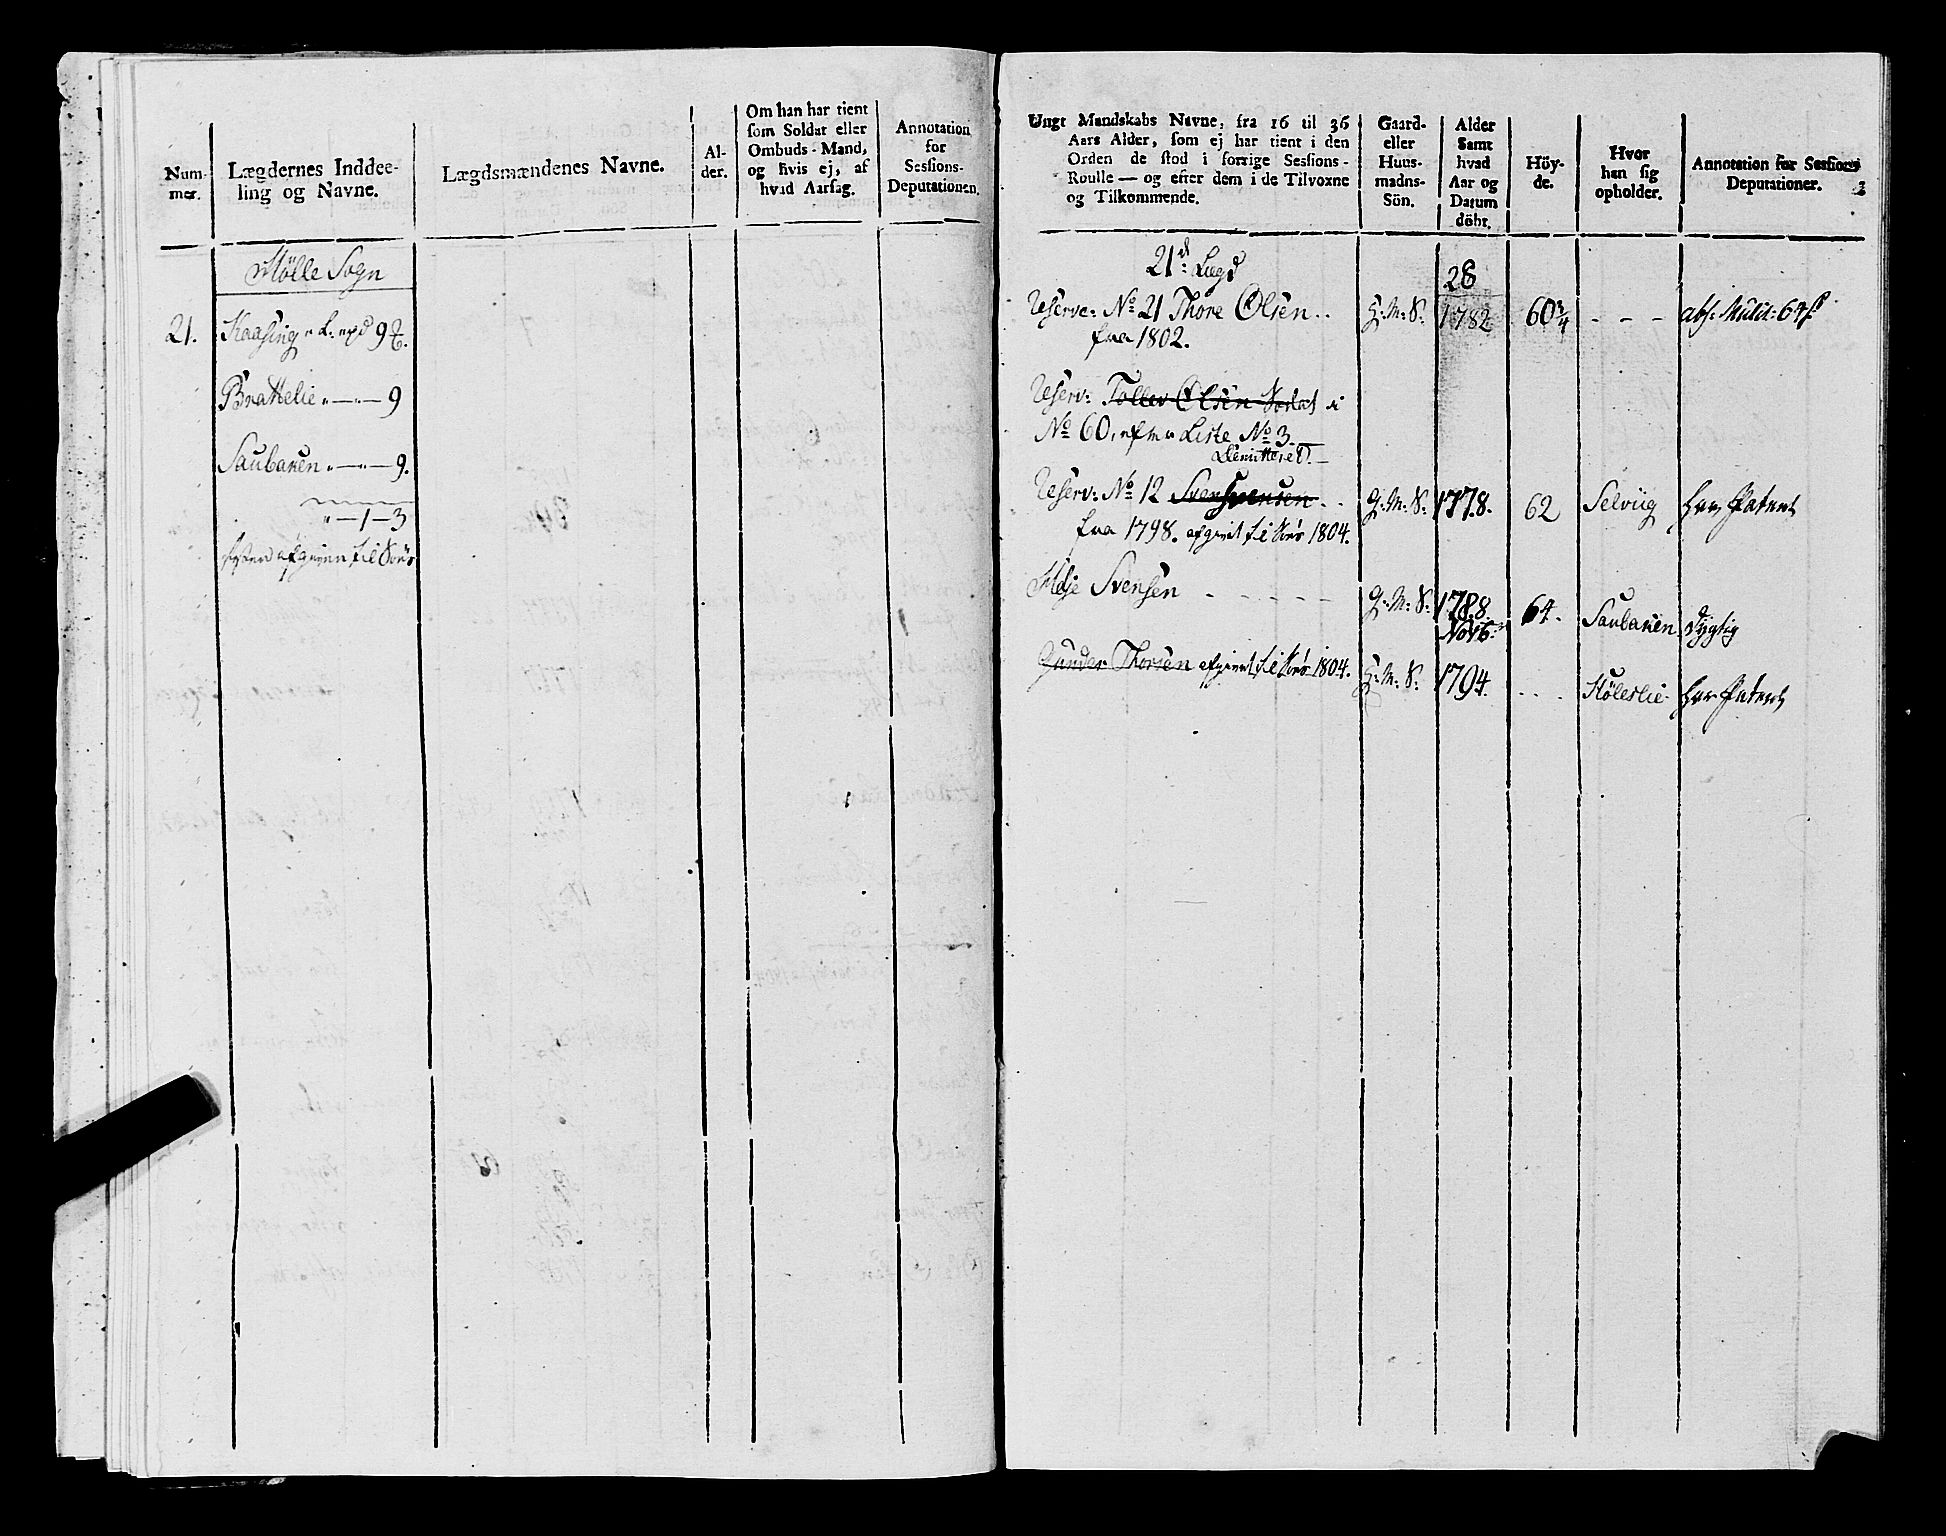 Num-
mer.
Lægdernes Inddee-
ling og Navne.
Lægdsmændenes Navne.
Al-
der.
Om han har tient
som Soldat eller
Ombuds-Mand,
og hvis ej, af
hvad Aarsag.
Annotation
for
Sessions-
Deputationen.
Sogn
21.
9
Brattelie " — " — 9
Saubaken " — " — 9.
" — 1 — 3
afgiven til
Ungt Mandskabs Navne, fra 16 til 36
Aars Alder, som ej har tient i den
Orden de stod i forrige Sessions-
Roulle — og efter dem i de Tilvoxne
og Tilkommende.
Gaard-
eller
Huus-
madns-
Sön.
Alder
Samt
hvad
Aar og
Datum
döbt.
Höy-
de.
Hvor
han sig
opholder.
Annotation for Sessions
Deputationer.
21d: Lægd
28
Reserve: No 21 Thore Olsen .. H: M: S: 1782 60 3/4 - - -
fra 1802.
Reserv: Olsen i
No 60, Liste No 3. —
Demitteret. —
Reserv: No 12 Svensen .. G: M: S: 1778. 62 Selviig har Patent
fra 1798. afgivet til 1804.
Svensen - - - - - - G: M: S: 1788. 64. Saubaken dygtig
Nov 6
Gunder Thorsen afgivet til 1804. H: M: S: 1794. ... Höleslie har Patent